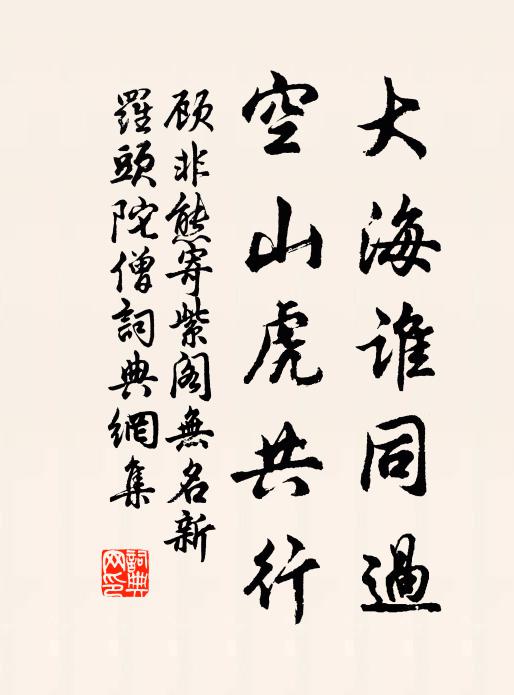 大海誰同過
空山虎共行
顧非熊寄紫閣無名新
羅頭陀僧詞典網集
詞典
网印